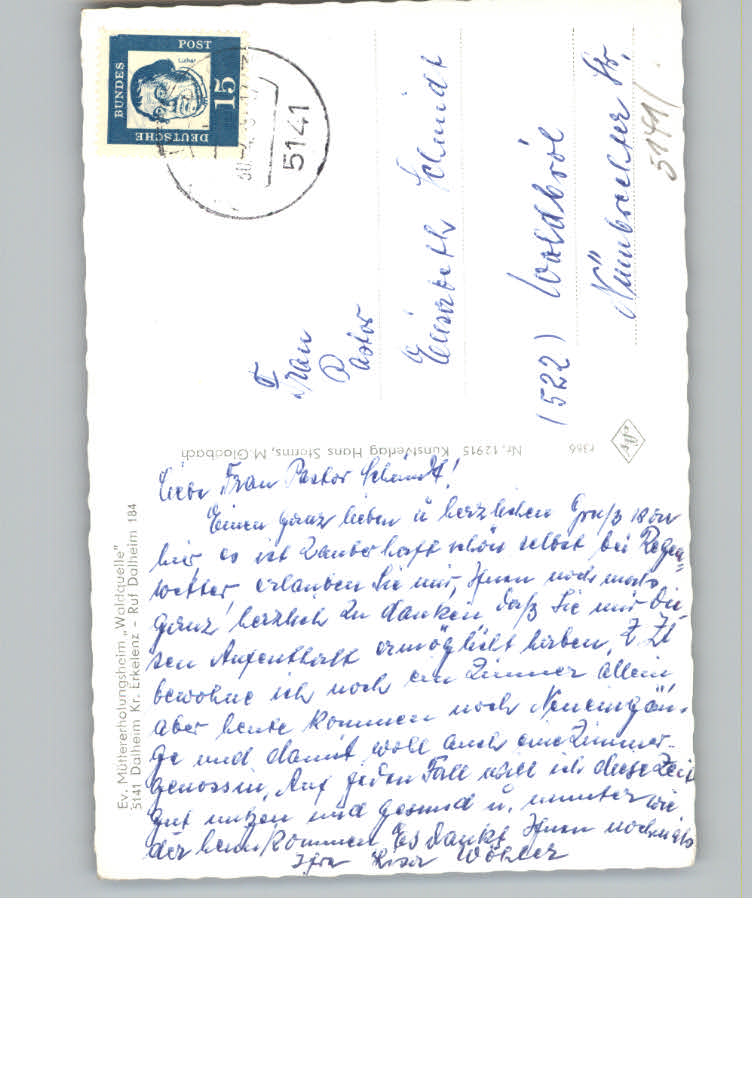 Liebe Frau Pastor Schmidt!
Einen ganz lieben u herzlichen Gruß von
hier, es ist zauberhaft schön selbst bei Regen-
wetter erlauben Sie mir, Ihnen nochmals
ganz herzlich zu danken, daß Sie mir die-
sen Aufenthalt ermöglicht haben, Z. Zt
bewohne ich noch ein Zimmer allein
aber heute kommen noch Neueingän-
ge und damit woll auch eine Zimmer-
genossin, Auf jeden Fall will ich diese Zeit
gut nutzen und gesund u. munter wie
der heimkommen Es dankt Ihnen nochmals
Ihre Wöhler
Ev. Müttererholungsheim „Waldquelle"
5141 Dalheim Kr. Erkelenz - Ruf Dalheim 184
Nr. 12915 Kunstverlag Hans Storms, M. Gladbach
r366
DEUTSCHE BUNDES POST
Luther
15
5141
Frau
Pastor
Elisabeth Schmidt
(522) Waldbröl
Nümbrechter Str.
5141/